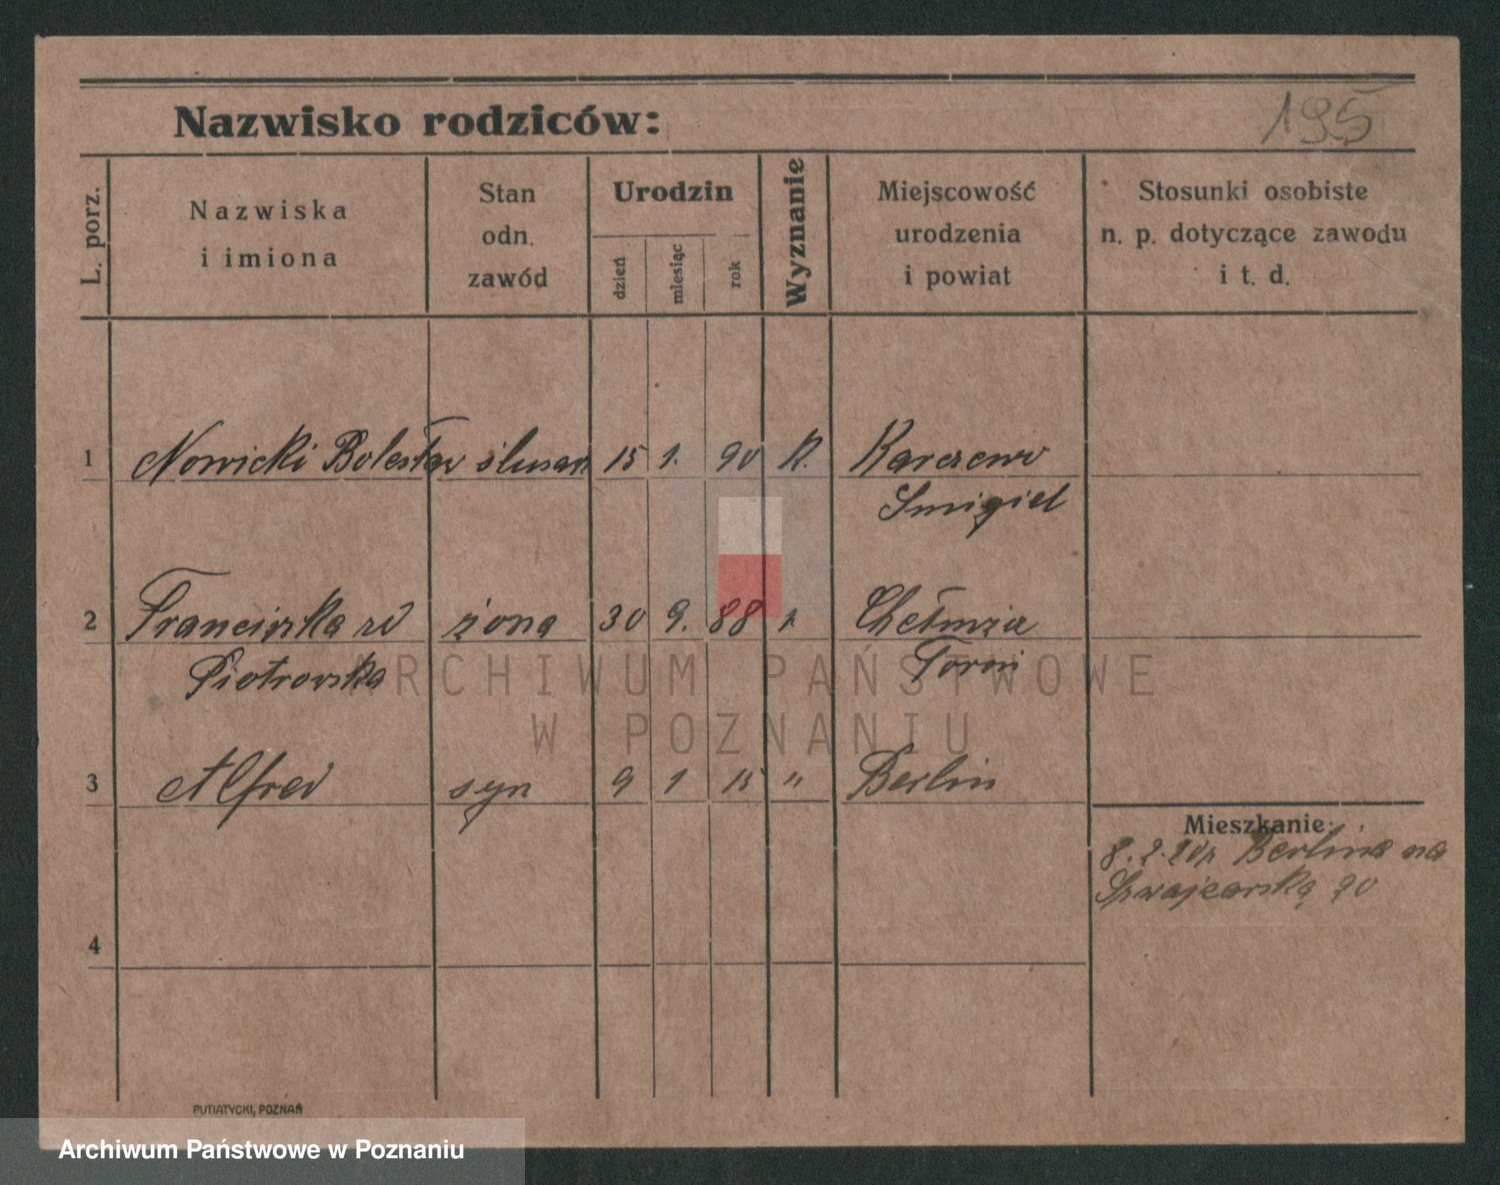 195
Nazwisko rodziców:
L. porz.
Nazwiska
i imiona
Stan
odn.
zawód
Urodzin
dzień
miesiąc
rok
Wyznanie
Miejscowość
urodzenia
i powiat
Stosunki osobiste
n. p. dotyczące zawodu
i t. d.
1 Nowicki Bolesław ślusarz 15 1. 90 k. Karczewo
Smigiel
2 Franciszka zd żona 30 9. 88 k Chełmża
Piotrowska Toruń
3 Alfred syn 9 1 15 " Berlin
Mieszkanie:
8.2.20 z Berlina na
Szwajcarską 90
4
ARCHIWUM PAŃSTWOWE
W POZNANIU
PUTIATYCKI, POZNAŃ
Archiwum Państwowe w Poznaniu